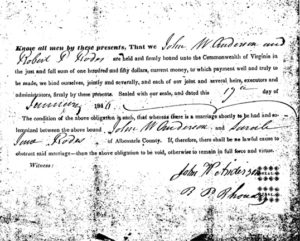 Know all men by these presents, That we John W Anderson and
Robert P Rodes are held and firmly bound unto the Commonwealth of Virginia in
the just and full sum of one hundred and fifty dollars, current money, to which payment well and truly to
be made, we bind ourselves, jointly and severally, and each of our joint and several heirs, executors and
administrators, firmly by these presents. Sealed with our seals, and dated this 17th day of
January 184
The condition of the above obligation is such, that whereas there is a marriage shortly to be had and so-
lemnized between the above bound John W Anderson and Sarah
Jane Rodes of Albemarle County. If, therefore, there shall be no lawful cause to
obstruct said marriage—then the above obligation to be void, otherwise to remain in full force and virtue.
Witness:
John W Anderson
R P Rhodes